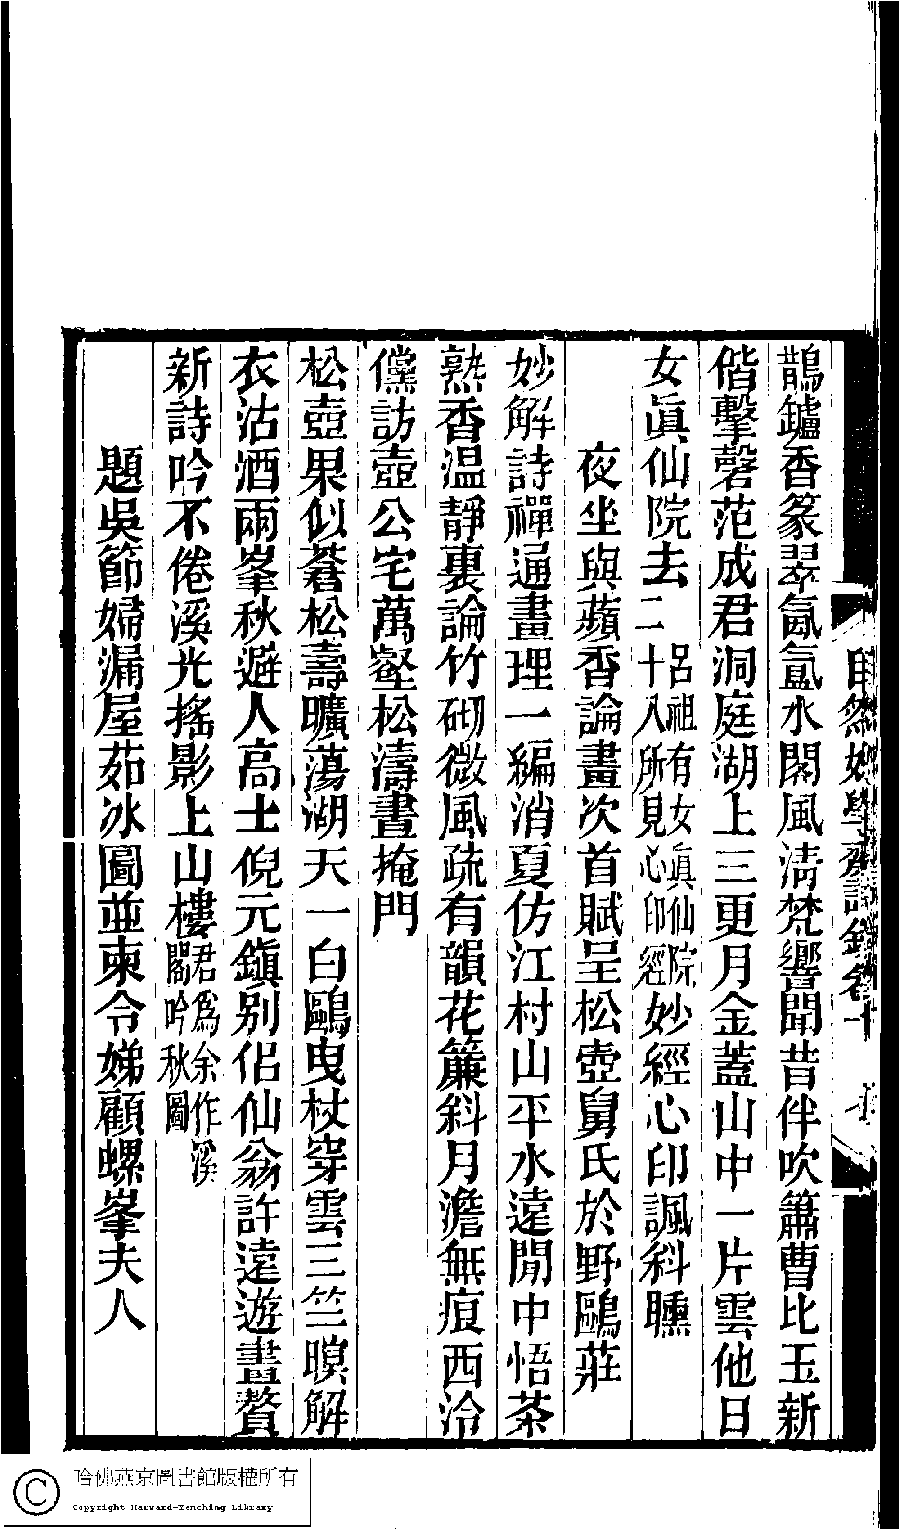 鵲鑪香篆翠氤氳水閣風淸梵響聞昔伴吹簫曹比玉新
偕擊磬范成君洞庭湖上三更月金蓋山中一片雲他日
女眞仙院去二十八所見心印經呂祖有女眞仙院妙經心印諷科臐
夜坐與蘋香論畫次首賦呈松壺舅氏於野鷗莊
妙解詩禪通畫理一編消夏仿江村山平水遠閒中悟茶
熟香温靜裏論竹砌微風疏有韻花簾斜月澹無痕西泠
儻訪壺公宅萬壑松濤晝掩門
松壺果似蒼松壽曠蕩湖天一白鷗曳杖穿雲三竺暝解
衣沽酒兩峯秋避人高士倪元鎭别侶仙翁許遠遊畫贅
新詩吟不倦溪光搖影上山樓君爲余作溪閣吟秋圖
題吳節婦漏屋茹冰圖並柬令娣顧螺峯夫人
自然好學齋詩鈔卷十
哈佛燕京圖書館版權所有
Copyright Harvard-Yenching Library